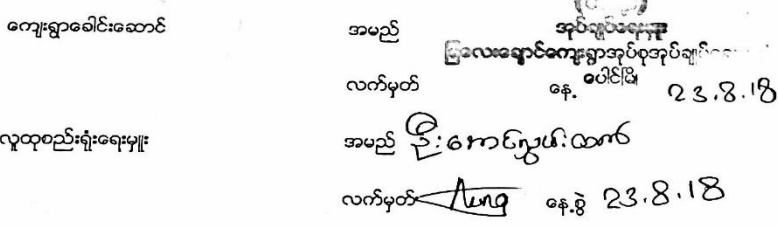 ကျေးရွာခေါင်းဆောင် အမည် အုပ်ချုပ်ရေးမှူး
မြလေးချောင်ကျေးရွာအုပ်စုအုပ်ချုပ်ရေး
ပေါင်မြို့
လက်မှတ် နေ့ 23.8.18
လူထုစည်းရုံးရေးမှူး အမည် ဦးအောင်လွှမ်းထက်
လက်မှတ် Aung နေ့စွဲ 23.8.18